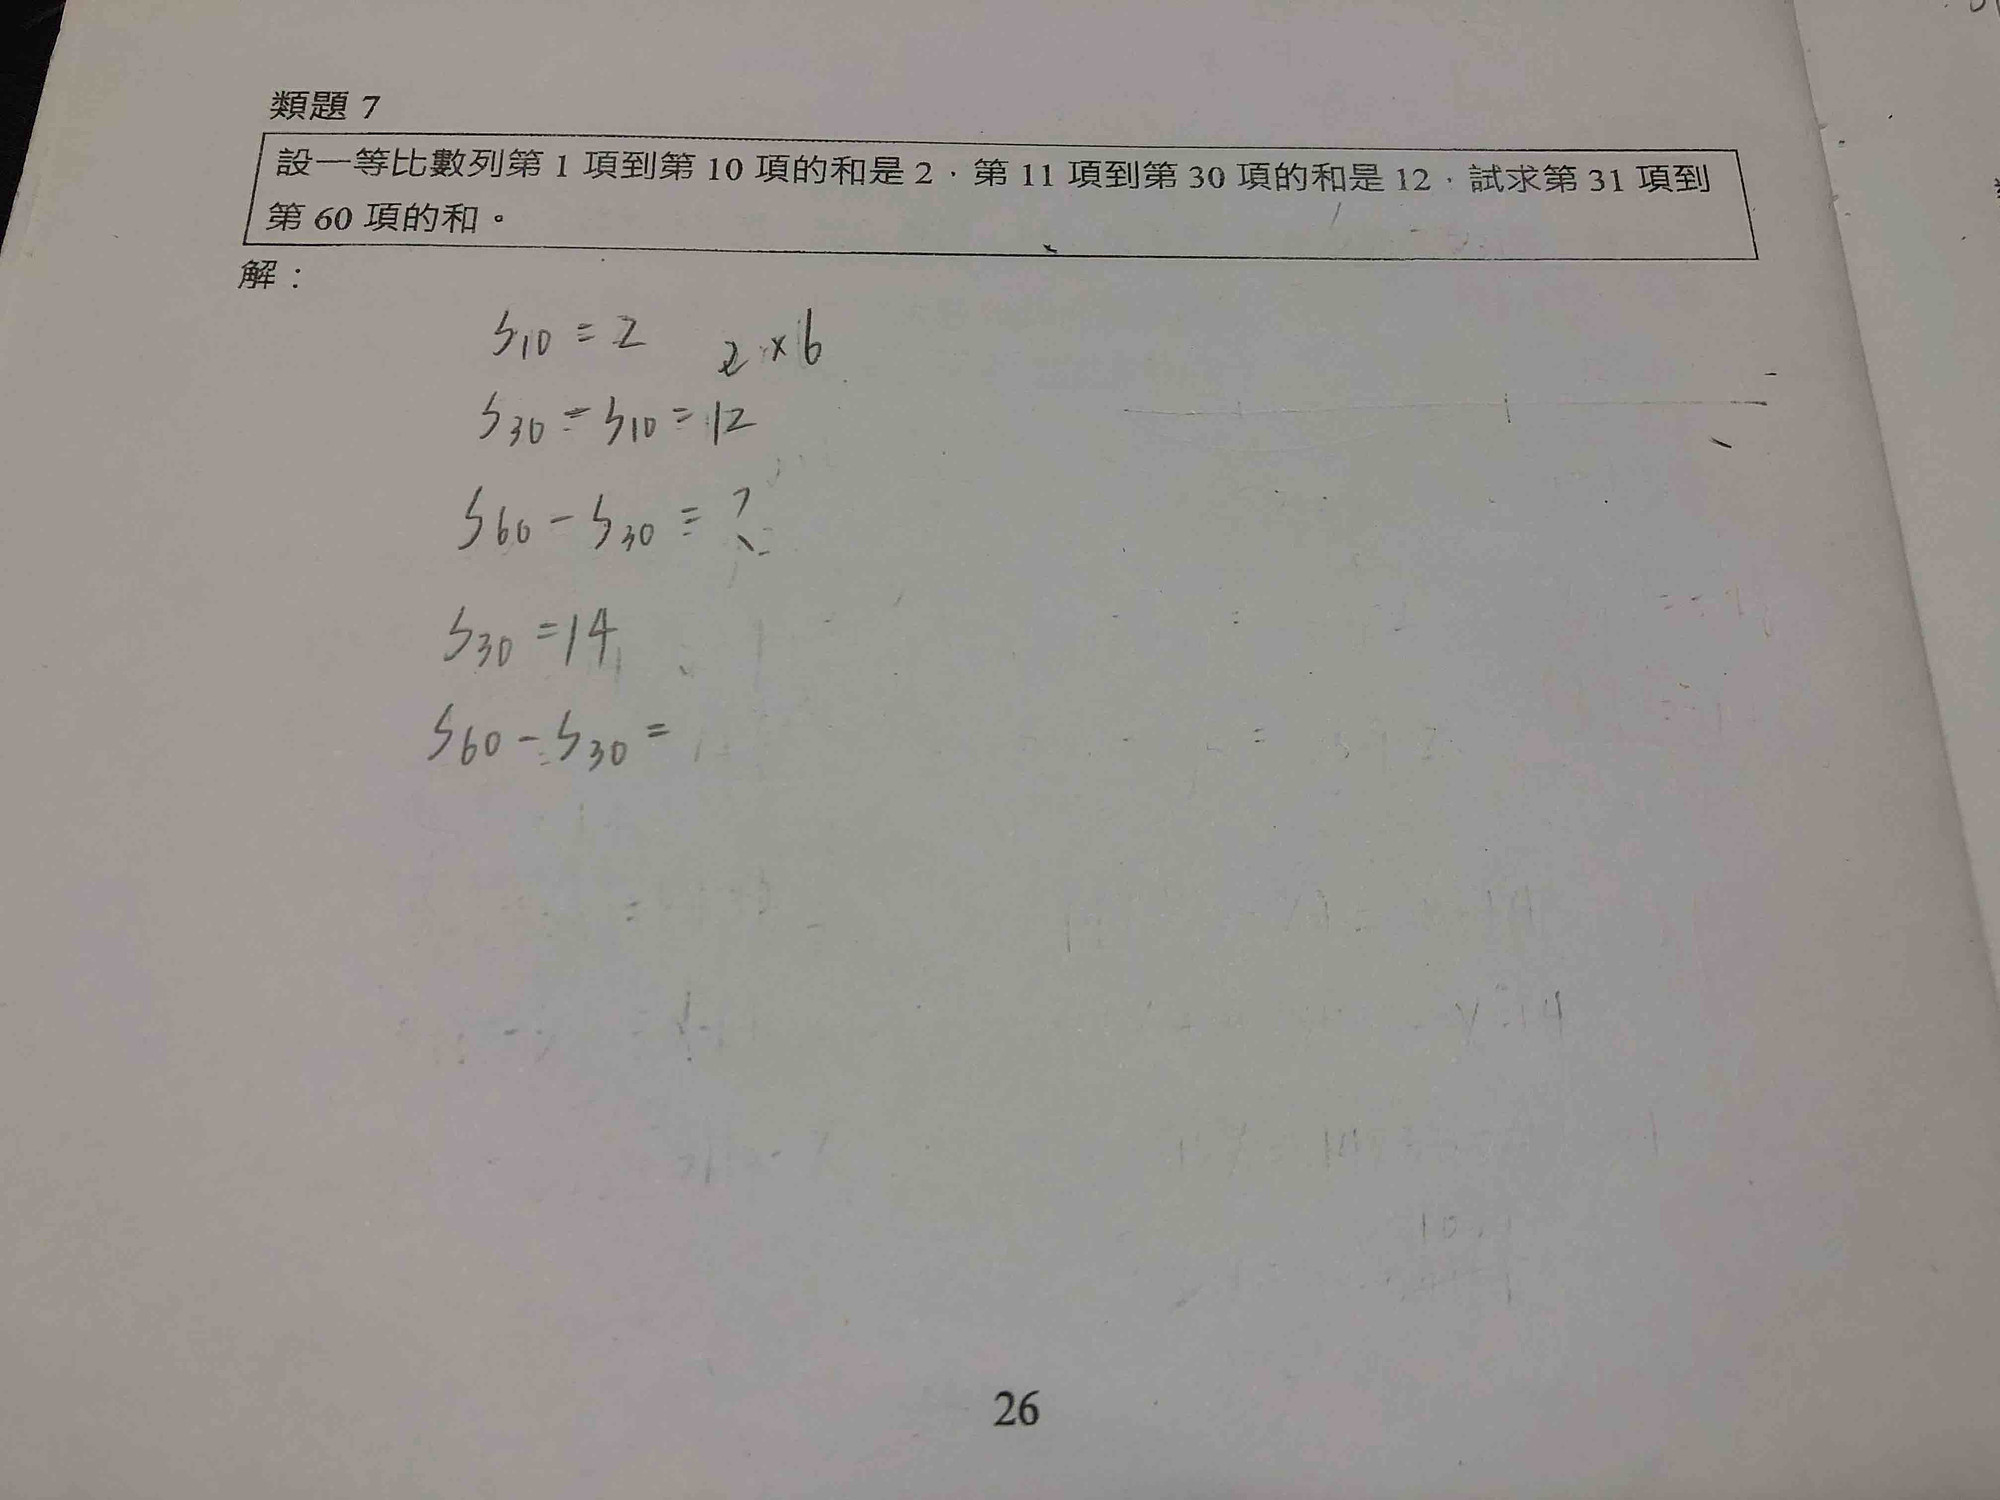 類題 7
設一等比數列第 1 項到第 10 項的和是 2，第 11 項到第 30 項的和是 12，試求第 31 項到
第 60 項的和。
解：
S10 = 2 2×6
S30 - S10 = 12
S60 - S30 = ?
S30 = 14
S60 - S30 =
26